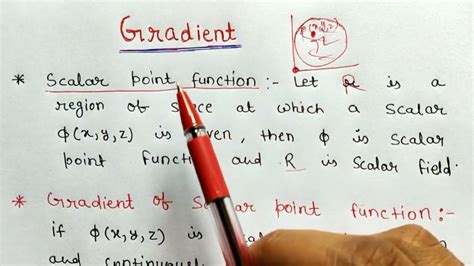 Gradient
* Scalar point function :- Let R is a
region of space at which a scalar
φ(x,y,z) is given, then φ is scalar
point function and R is scalar field.
* Gradient of scalar point function:-
if φ(x,y,z) is
and continuous